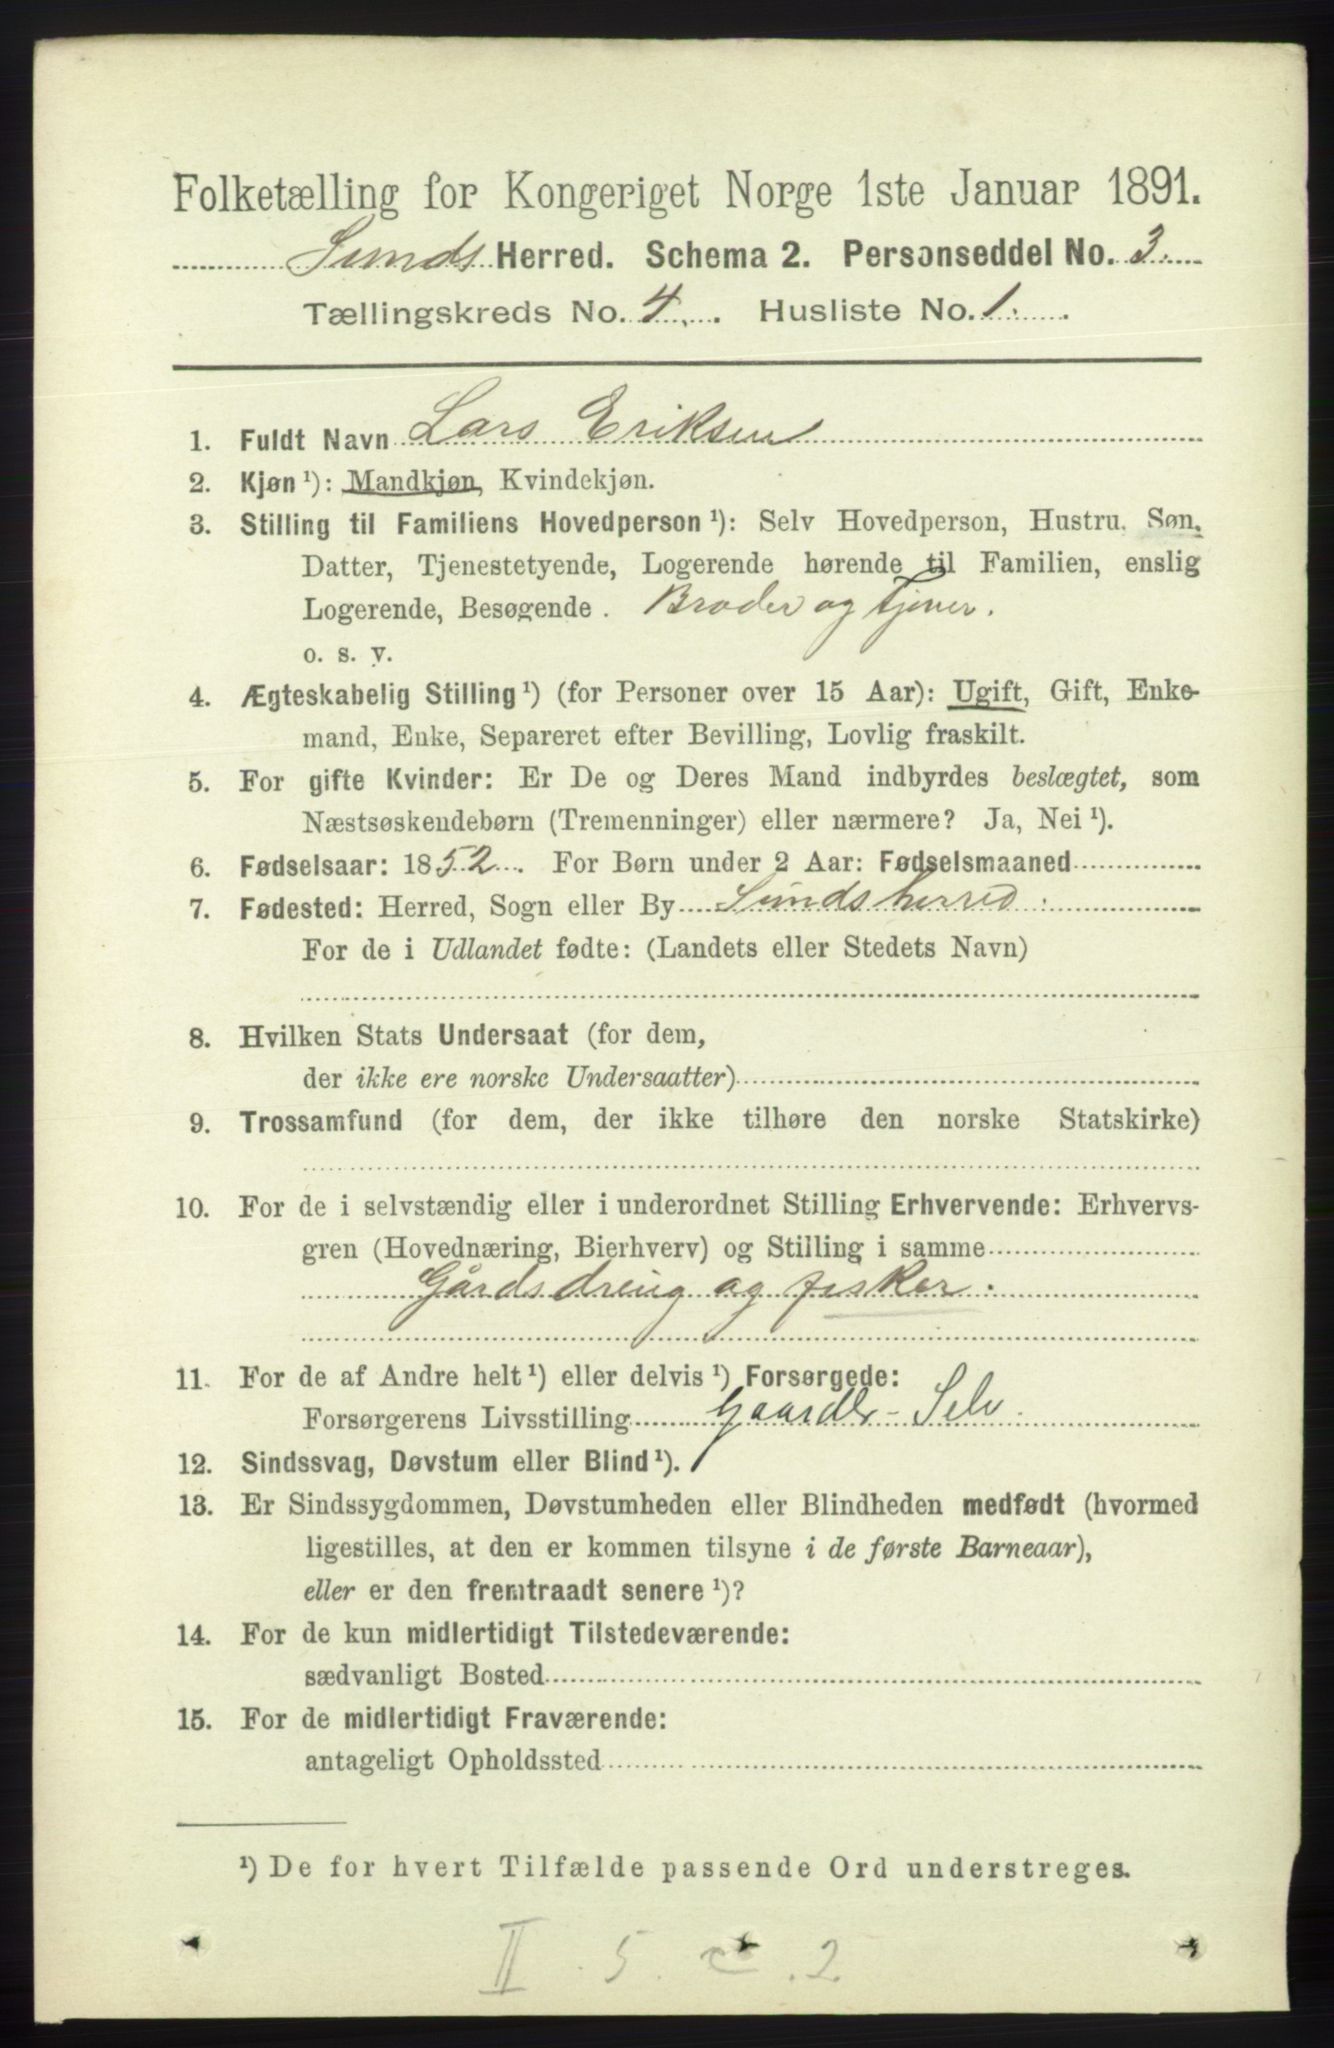 Folketælling for Kongeriget Norge 1ste Januar 1891.
Sunds Herred. Schema 2. Personseddel No. 3.
Tællingskreds No. 4. Husliste No. 1.
1. Fuldt Navn Lars Eriksen
2. Kjøn ¹): Mandkjøn, Kvindekjøn.
3. Stilling til Familiens Hovedperson ¹): Selv Hovedperson, Hustru, Søn,
Datter, Tjenestetyende, Logerende hørende til Familien, enslig
Logerende, Besøgende. Broder og tjener.
o. s. v.
4. Ægteskabelig Stilling ¹) (for Personer over 15 Aar): Ugift, Gift, Enke-
mand, Enke, Separeret efter Bevilling, Lovlig fraskilt.
5. For gifte Kvinder: Er De og Deres Mand indbyrdes beslægtet, som
Næstsøskendebørn (Tremenninger) eller nærmere? Ja, Nei ¹).
6. Fødselsaar: 1852. For Børn under 2 Aar: Fødselsmaaned
7. Fødested: Herred, Sogn eller By Sundsherred.
For de i Udlandet fødte: (Landets eller Stedets Navn)
8. Hvilken Stats Undersaat (for dem,
der ikke ere norske Undersaatter)
9. Trossamfund (for dem, der ikke tilhøre den norske Statskirke)
10. For de i selvstændig eller i underordnet Stilling Erhvervende: Erhvervs-
gren (Hovednæring, Bierhverv) og Stilling i samme
Gårdsdreng og fisker.
11. For de af Andre helt ¹) eller delvis ¹) Forsørgede:
Forsørgerens Livsstilling Gaardbr - Selv.
12. Sindssvag, Døvstum eller Blind ¹).
13. Er Sindssygdommen, Døvstumheden eller Blindheden medfødt (hvormed
ligestilles, at den er kommen tilsyne i de første Barneaar),
eller er den fremtraadt senere ¹)?
14. For de kun midlertidigt Tilstedeværende:
sædvanligt Bosted
15. For de midlertidigt Fraværende:
antageligt Opholdssted
¹) De for hvert Tilfælde passende Ord understreges.
II . 5. c . 2